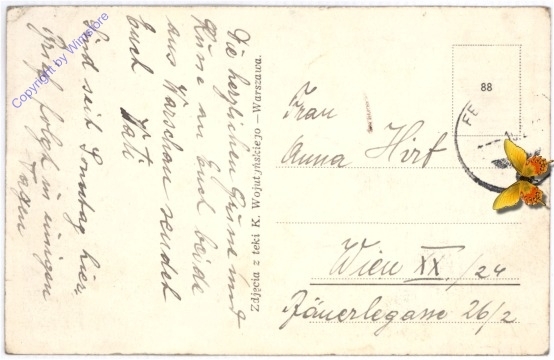 Die herzlichsten Grüsse und
Küsse an Euch beide
aus Warschau sendet
Euch
Sind seit Sonntag hier.
Brief folgt in einigen
Tagen
Zdjęcia z teki K. Wojutyńskiego – Warszawa.
88
FE
Frau
Anna
Wien XX./24
26/2
Copyright by Winstore